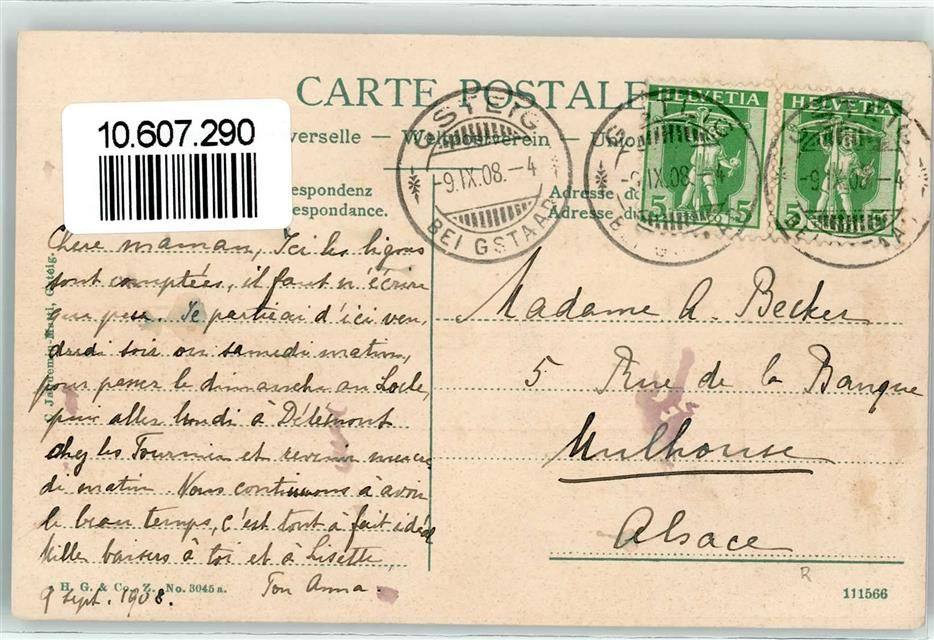 CARTE POSTALE
10.607.290
verselle — Weltpostverein — Union
espondenz
espondance.
Adresse de
Adresse du
GSTEIG
-9.IX.08.-4
BEI GSTAAD
HELVETIA
5 5
HELVETIA
5
Chère maman, Ici les lignes
sont comptées, il faut n'écrire
que peu. Je partirai d'ici ven,
dredi soir ou samedi matin,
pour passer le dimanche au Locle,
puis aller lundi à Délémont
chez les Tournier et revenir mercre
di matin Nous continuons à avoir
le beau temps, c'est tout à fait idéal
Mille baisers à toi et à Lisette
Ton Anna.
9 sept. 1908.
Madame A. Becker
5 Rue de la Banque
Mulhouse
Alsace
H. G. & Co., Z. No. 3045 a.
R
111566